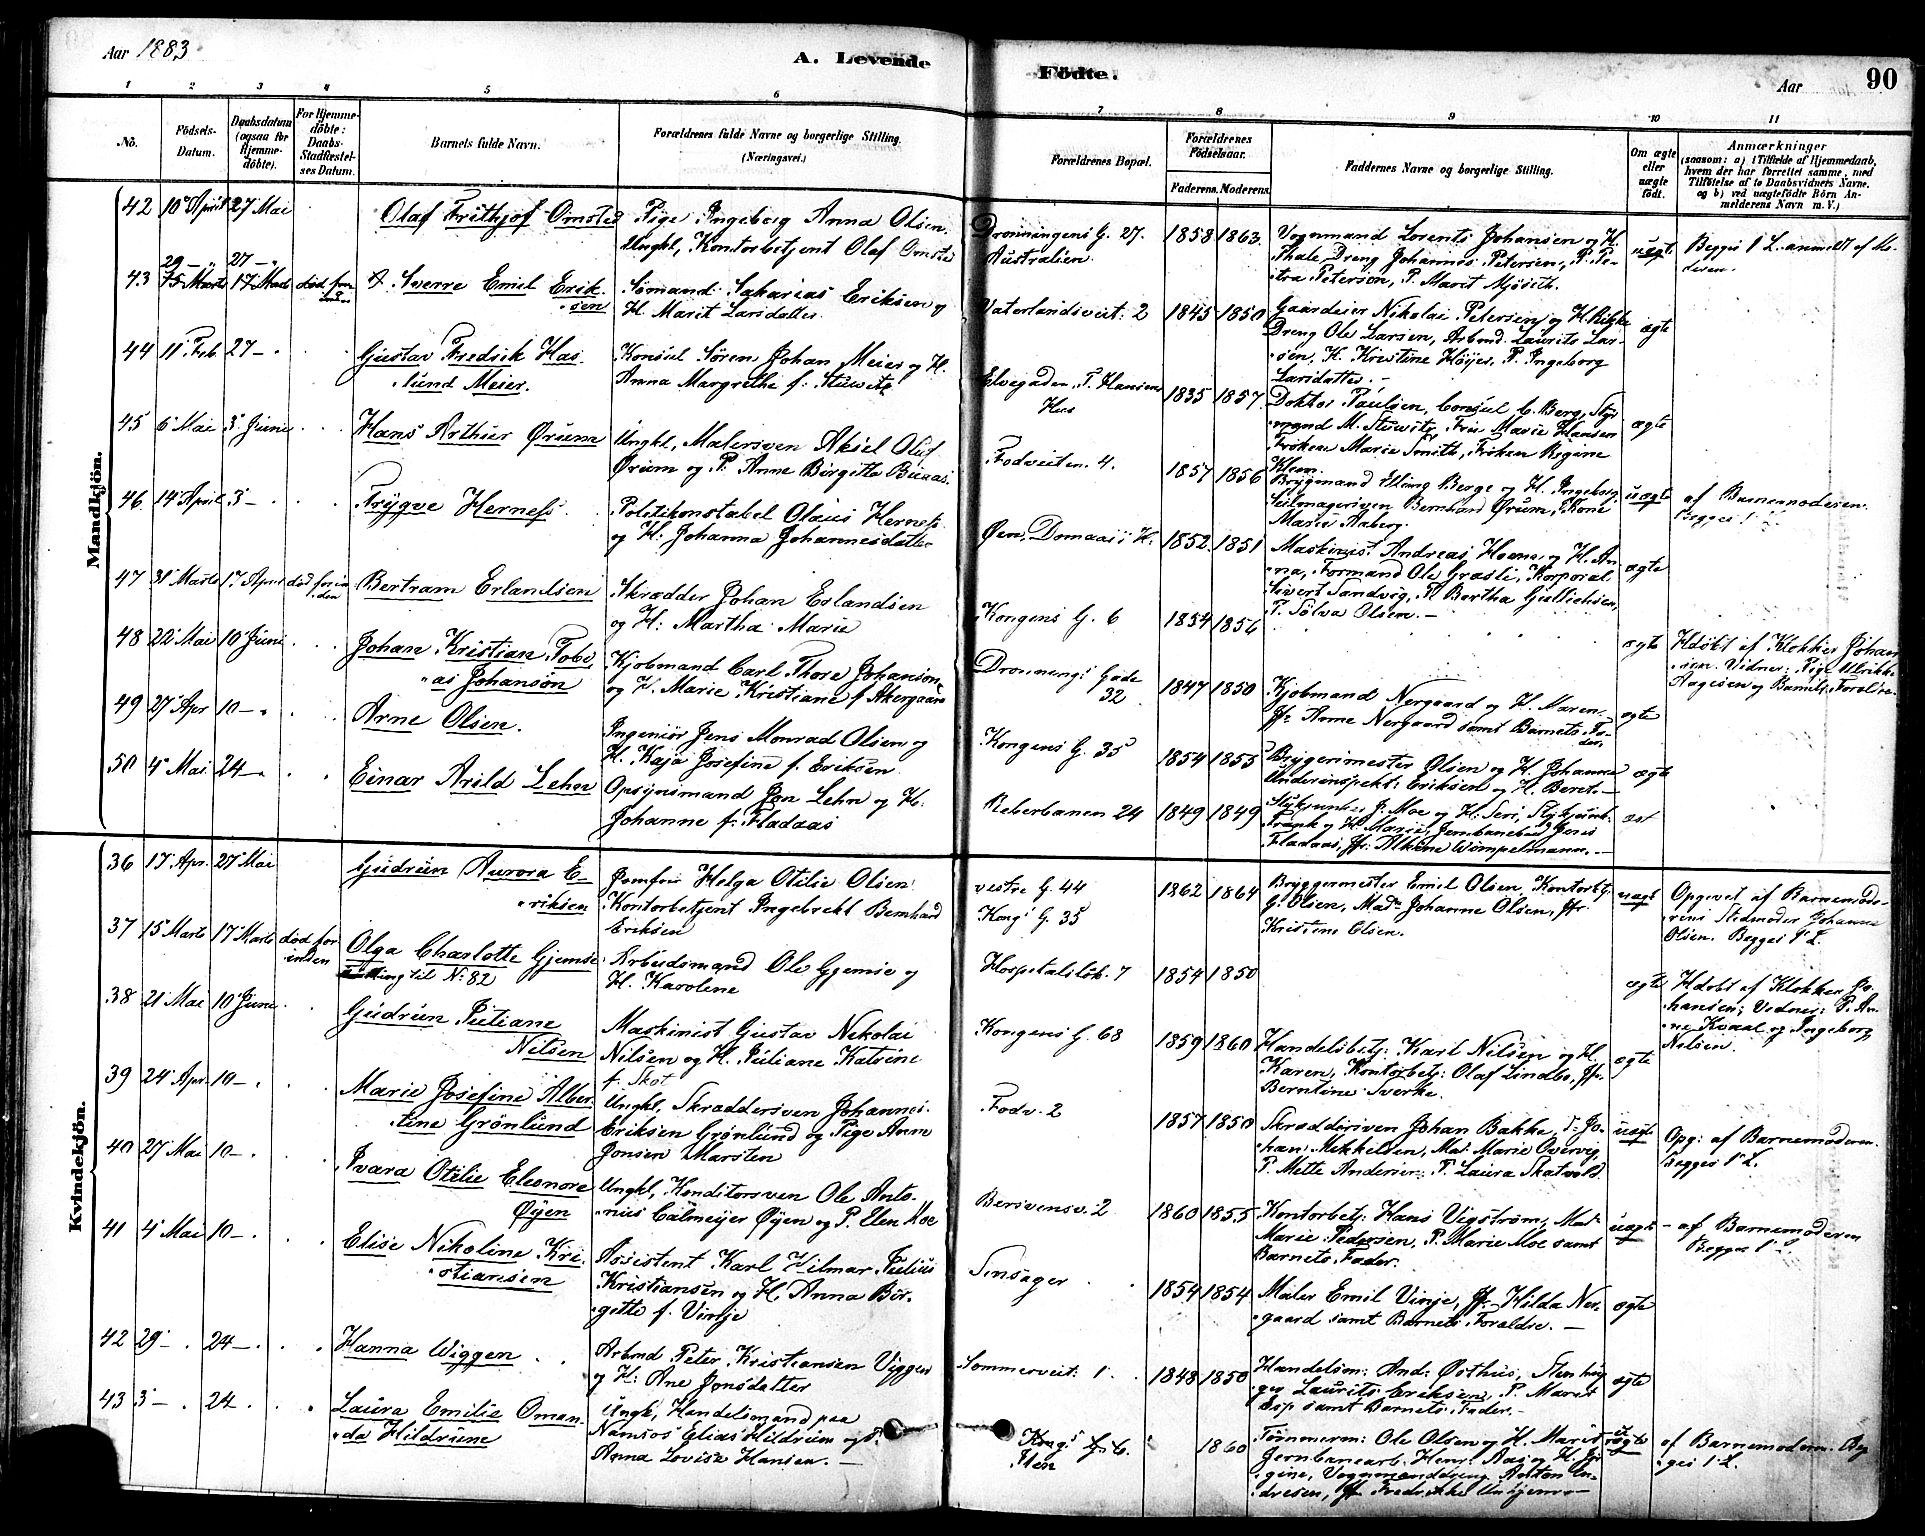 Aar 1883
A. Levende
Födte.
Aar
90
1 2 3 4 5 6 7 8 9 10 11
No.
Födsels-
Datum.
Daabsdatum
(ogsaa for
Hjemme-
döbte).
For Hjemme-
döbte:
Daabs-
Stadfæstel-
ses Datum.
Barnets fulde Navn.
Forældrenes fulde Navne og borgerlige Stilling.
(Næringsvei.)
Forældrenes Bopæl.
Forældrenes
Födselsaar.
Faderens. Moderens.
Faddernes Navne og borgerlige Stilling.
Om ægte
eller
uægte
födt.
Anmærkninger
(saasom: a) i Tilfælde af Hjemmedaab,
hvem der har forrettet samme, med
Tilföielse af to Daabsvidners Navne.
og b) ved uægtefödte Börn An-
melderens Navn m. V.)
Mandkjön.
42 10 April 27 Mai
Olaf Frithjof Omsted
Pige Ingeborg Anna Olsen.
Ungkl, Kontorbetjent Olaf Omsted
Dronningens G. 27.
Australien.
1858 1863.
Vognmand Lorents Johansen og H.
Thale, Dreng Johannes Petersen, P. Pe-
tra Petersen, P. Marit Mjöseth.
uægte
Begges 1 L. anmeldt af Mo-
deren.
29 — " 27 — "
43 15 Marts 17 Marts död for
inden
Sverre Emil Erik-
sen
Sömand Sakarias Eriksen og
H. Marit Larsdatter
Vaterlandsveit: 2
1845 1850
Gaardeier Nikolai Petersen og H. Rikke
Dreng Ole Larsen, Arbmd. Laurits Lar-
sen, K. Kristine Höyer, P. Ingeborg
Larsdatter. —
ægte
44 11 Feb. 27 — "
Gustav Fredrik Has-
lund Meier.
Konsul Sören Johan Meier og H.
Anna Margrethe f. Stuwitz
Elvegaden, T. Hansens
Hus
1835 1857.
Doktor Paulsen, Consul C. Berg, Sty-
mand M. Stuwitz, Frue Marie Hansen
Fröken Marie Smith, Fröken Regine
Klem.
ægte
45 6 Mai 3 Juni
Hans Arthur Ørum
Ungkl, Malersven Aksel Oluf
Ørum og P. Anne Birgitte Buaas.
Fodveiten. 4.
1857 1856
Brygmand Elling Berge og H. Ingeborg,
Seilmagersven Bernhard Ørum, Kone
Marie Aaberg.
uægte
af Barnemoderen.
Begges 1 L.
46 14 April 3 — "
Trygve Herness
Politikonstabel Olaus Herness
og H. Johanna Johannesdatter
Øen, Domaas's H.
1852. 1851
Maskinist Andreas Hoem og H. An-
na, Formand Ole Græsli, Korporal
Sivert Sandvig, P. Bertha Gullichsen,
P. Sölva Olsen. —
ægte
47 31 Marts 1 April död forin-
den
Bertram Erlandsen
Skrædder Johan Erlandsen
og H. Martha Marie
Kongens G. 6
1854 1856
ægte
Hdöbt af Klokker Johan-
sen. Vidner: Pige Ulrikke
Aagesen og Barnets Forældre.
48 22 Mai 10 Juni
Johan Kristian Tobi-
as Johansön
Kjöbmand Carl Thore Johansön
og H. Marie Kristiane f. Akergaard
Dronning: Gade
32
1847 1850
Kjöbmand Nergaard og H. Maren
Jfr. Anne Nergaard samt Barnets Fa-
der.
ægte
49 27 Apr 10 — "
Arne Olsen.
Ingeniör Jens Monrad Olsen og
H. Kaja Josefine f. Eriksen
Kongens G. 35
1854 1855
Bryggerimester Olsen og H. Johanne
Underinspekt: Eriksen og H. Beret. —
ægte
50 4 Mai 24 — "
Einar Arild Lehn
Opsynsmand Jon Lehn og H.
Johanne f. Fladaas
Reberbanen 24
1849 1849
Stykjunker J. Moe og H. Seri, Stykjunk.
Frank og H. Marie, Jernbanebud Jens
Fladaas, Jfr. Alkine Wimpelmann. —
Kvindekjön.
36 17 Apr. 27 Mai
Gudrun Aurora E-
riksen
Jomfru Helga Otilie Olsen
Kontorbetjent Ingebrekt Bernhard
Eriksen
vestre G. 44
Kong: G. 35
1862 1864
Bryggermester Emil Olsen, Kontorbtj.
G. Olsen, Mad: Johanne Olsen, Jfr.
Kristine Olsen.
uægte
Opgivet af Barnemode-
rens Stedmoder Johanne
Olsen. Begges 1 L.
37 15 Marts 17 Marts död for
inden
Olga Charlotte Gjemse
til No. 82
Arbeidsmand Ole Gjemse og
H. Karoline
Hospitalslök. 7
1854 1850
ægte
Hdöbt af Klokker Jo-
hansen; Vidner: P. An-
ne Kvaal og Ingeborg
Nilsen.
38 21 Mai 10 Juni
Gudrun Juliane
Nilsen
Maskinist Gustav Nikolai
Nilsen og H. Juliane Katrine
f. Skot
Kongens G. 68
1859 1860
Handelsbetj: Karl Nilsen og H.
Karen, Kontorbetj: Olaf Lindbo, Jfr.
Berntine Sverke.
ægte
39 24 Apr. 10 — "
Marie Josefine Alber-
tine Grönlund
Ungkl, Skræddersven Johannes
Eriksen Grönlund og Pige Anne
Jonsen Marsten
Fodv. 2
1857 1850
Skræddersven Johan Bakke, T. Jo-
han Mikkelsen, Mad: Marie Overvig,
P. Mette Andersen, P. Laura Skatvold.
uægte
Opg: af Barnemoderen.
Begges 1 L.
40 27 Mai 10 — "
Ivara Otilie Eleonore
Øyen
Ungkl, Konditorsven Ole Anto-
nius Calmeyer Øyen og P. Elen Moe
Bersvensv. 2
1860 1855
Kontorbetj: Hans Vigström, Mad:
Marie Pedersen, P. Marie Moe samt
Barnets Fader.
uægte
af Barnemoderen
Begges 1 L.
41 4 Mai 10 — "
Elise Nikoline Kri-
stiansen
Assistent Karl Hilmar Julius
Kristiansen og H. Anna Bir-
gitte f. Vinje
Smsager
1854 1854
Maler Emil Vinje, Jfr. Hilda Ner-
gaard samt Barnets Forældre. —
ægte
42 29 — " 24 — "
Hanna Wiggen
Arbmd Peter Kristiansen Viggen
og H. Ane Jonsdatter
Sommerveit: 1
1848 1850
Handelsm: And: Østhus, Stenhug-
ger Laurits Eriksen, P. Marit
Esp samt Barnets Fader. —
ægte
43 3 — " 24 — "
Laura Emilie Oman-
da Hildrum
Ungk, Handelsmand paa
Namsos Elias Hildrum og P.
Anna Lovise Hansen. —
Kong: G. 6.
1860
Tömmerm: Ole Olsen og H. Marit
Jernbanearb. Henr. Aas og H. Jør-
gine, Vognmanddreng Anton An-
dresen, Jfr. Fredrikke
uægte
af Barnemodern. Beg-
ges 1 L.